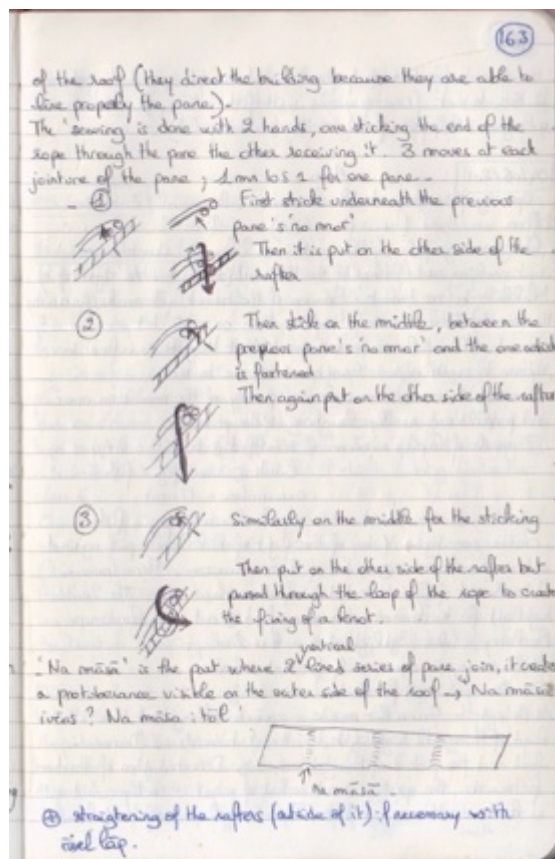 163
of the roof (they direct the building because they are able to
line properly the pane).
The 'sewing' is done with 2 hands, one sticking the end of the
rope through the pane the other receiving it. 3 moves at each
jointure of the pane; 1 mn 10 s for one pane.
1
First stick underneath the previous
pane's 'no mor'
Then it is put on the other side of the
rafter
2
Then stick on the middle, between the
previous pane's 'no mor' and the one which
is fastened
Then again put on the other side of the rafter
3
Similarly on the middle for the sticking
Then put on the other side of the rafter but
passed through the loop of the rope to create
the fixing of a knot.
'Na māsā' is the part where 2 vertical lined series of pane join, it creates
a protuberance visible on the outer side of the roof → 'Na māsā
? Na māsa : tōl'
na māsā.
⊕ straigtening of the rafters (outside of it) if necessary with
lāp.